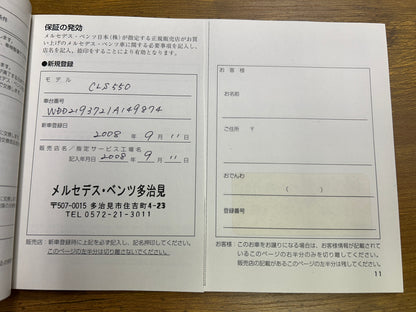 保証の発効
メルセデス・ベンツ日本（株）が指定する正規販売店がお買
い上げのメルセデス・ベンツ車に関する必要事項を記入し、
店名を記入、捺印をすることにより有効となります。
●新規登録
モデル
CLS550
車台番号
WDD2193721A149874
新車登録日
2008 年 9 月 11 日
販売店名／指定サービス工場名
記入年月日 2008 年 9 月 11 日
メルセデス・ベンツ多治見
〒507-0015 多治見市住吉町4-23
TEL 0572-21-3011
販売店：新車登録時に上記を必ず記入し、記名押印してください。
このページの左半分は切り離さないでください。
お客様
お名前
ご住所 〒
おでんわ
（ ）
登録番号
お客様：このお車をお譲りになる場合は、お客様情報が記載されて
いるこのページの右半分のみを切り離してください。
販売店の記載があるこのページの左半分は残してください。
11